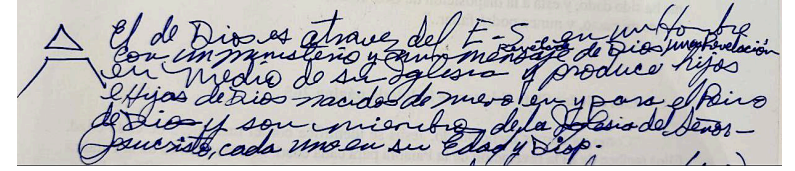 El de Dios es atraves del E-S en un Hombre
con un ministerio y un mensaje revelado de Dios una Revelación
en medio de su Iglesia y produce hijos
e Hijas de Dios nacidos de nuevo en y para el Reino
de Dios y son miembros de la Iglesia del Señor
Jesucristo, cada uno en su Edad y Disp.